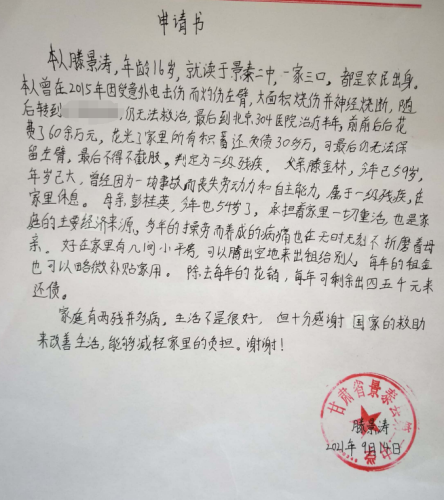 申请书
本人滕景涛,年龄16岁,就读于景泰二中,一家三口,都是农民出身。
本人曾在2015年因受意外电击伤而灼伤左臂,大面积烧伤并神经烧断,随
后转到 仍无法救治,最后到北京304医院治疗半年,前前后后花
费了60余万元,花光了家里所有积蓄还欠债30多万,可最后仍无法保
留左臂,最后不得不截肢。判定为二级残疾。父亲滕金林,今年已59岁,
年岁已大,曾经因为一场事故而丧失劳动力和自主能力,属于一级残疾,在
家里休息。母亲彭桂英,今年也54岁了,承担着家里一切重活,也是家
庭的主要经济来源,多年的操劳而养成的病痛也在无时无刻不折磨着母
亲。好在家里有几间小平房,可以腾出空地来出租给别人,每年的租金
也可以略微补贴家用。除去每年的花销,每年可剩余出四五千元来
还债。
家庭有两残并多病。生活不是很好,但十分感谢国家的救助
来改善生活,能够减轻家里的负担。谢谢!
甘肃省景泰
滕景涛
2021年9月14日